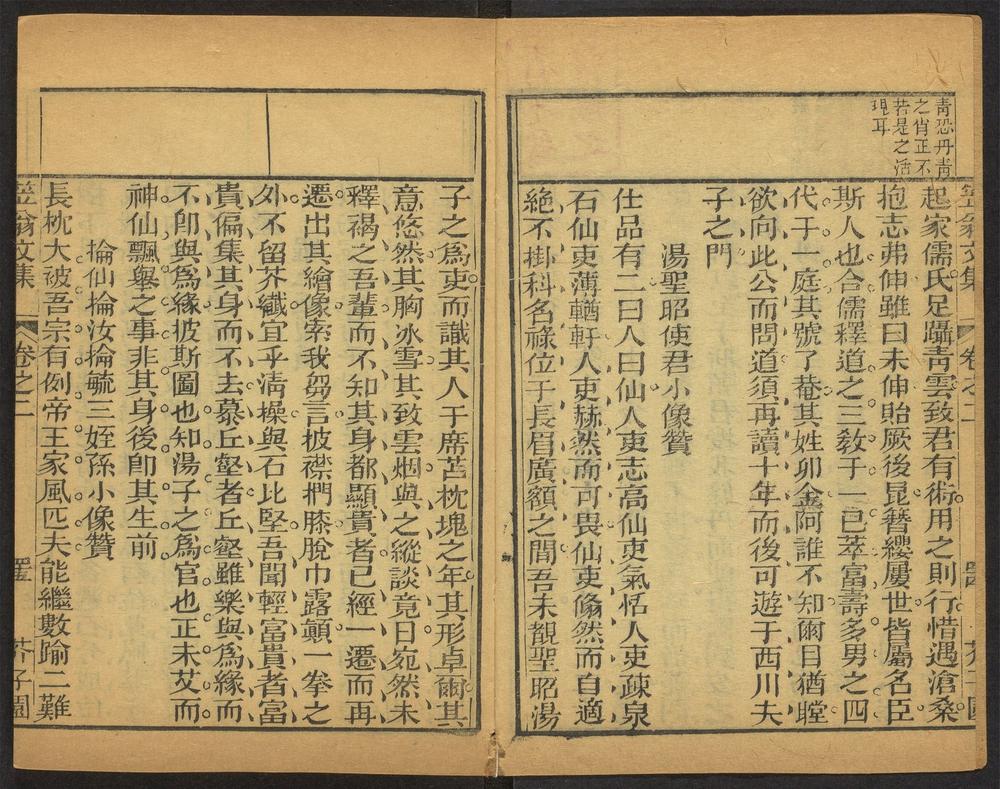 青恐丹青
之肖正不
若是之活
現耳
起家儒氏足躡靑雲致君有術用之則行惜遇滄桑
抱志弗伸雖曰未伸貽厥後昆簪纓屢世皆屬名臣
斯人也合儒釋道之三敎于一已萃富壽多男之四
代于一庭其號了菴其姓卯金阿誰不知爾目猶瞠
欲向此公而問道須再讀十年而後可遊于西川夫
子之門
湯聖昭使君小像贊
仕品有二曰人曰仙人吏志高仙吏氣恬人吏疎泉
石仙吏薄輶軒人吏赫然而可畏仙吏翛然而自適
絶不掛科名祿位于長眉廣額之間吾未覩聖昭湯
子之爲吏而識其人于席苫枕塊之年其形卓爾其
意悠然其胸冰雪其致雲烟與之縱談竟日宛然未
釋褐之吾輩而不知其身都顯貴者已經一遷而再
遷出其繪像索我芻言披襟捫膝脫巾露顚一拳之
外不留芥纖宜乎淸操與石比堅吾聞輕富貴者富
貴偏集其身而不去慕丘壑者丘壑雖樂與爲緣而
不卽與爲緣披斯圖也知湯子之爲官也正未艾而
神仙飄舉之事非其身後卽其生前
掄仙掄汝掄毓三姪孫小像贊
長枕大被吾宗有例帝王家風匹夫能繼數踰二難
笠翁文集
卷之二
芥子園